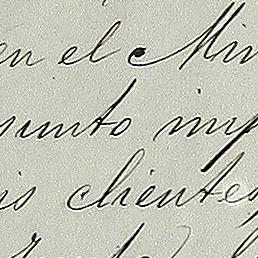 en el Min
sunto imp
is clientes